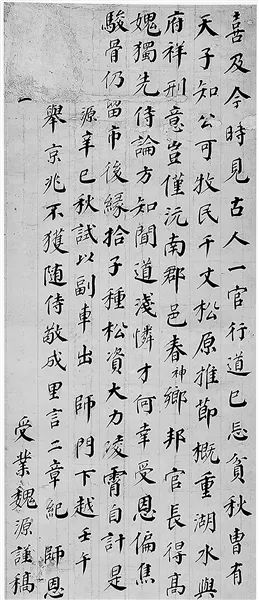 喜及今時見古人一官行道已忘貧秋曹有
天子知公可牧民千丈松原推節概重湖水與
府祥刑意豈僅沅南郡邑春神鄉邦官長得高
媿獨先侍論方知聞道淺憐才何幸受恩偏焦
駿骨仍留市後緣拾子種松資大力凌霄自計是
源辛巳秋試以副車出 師門下越壬午
舉京兆不獲隨侍敬成里言二章紀 師恩
受業魏源謹稿